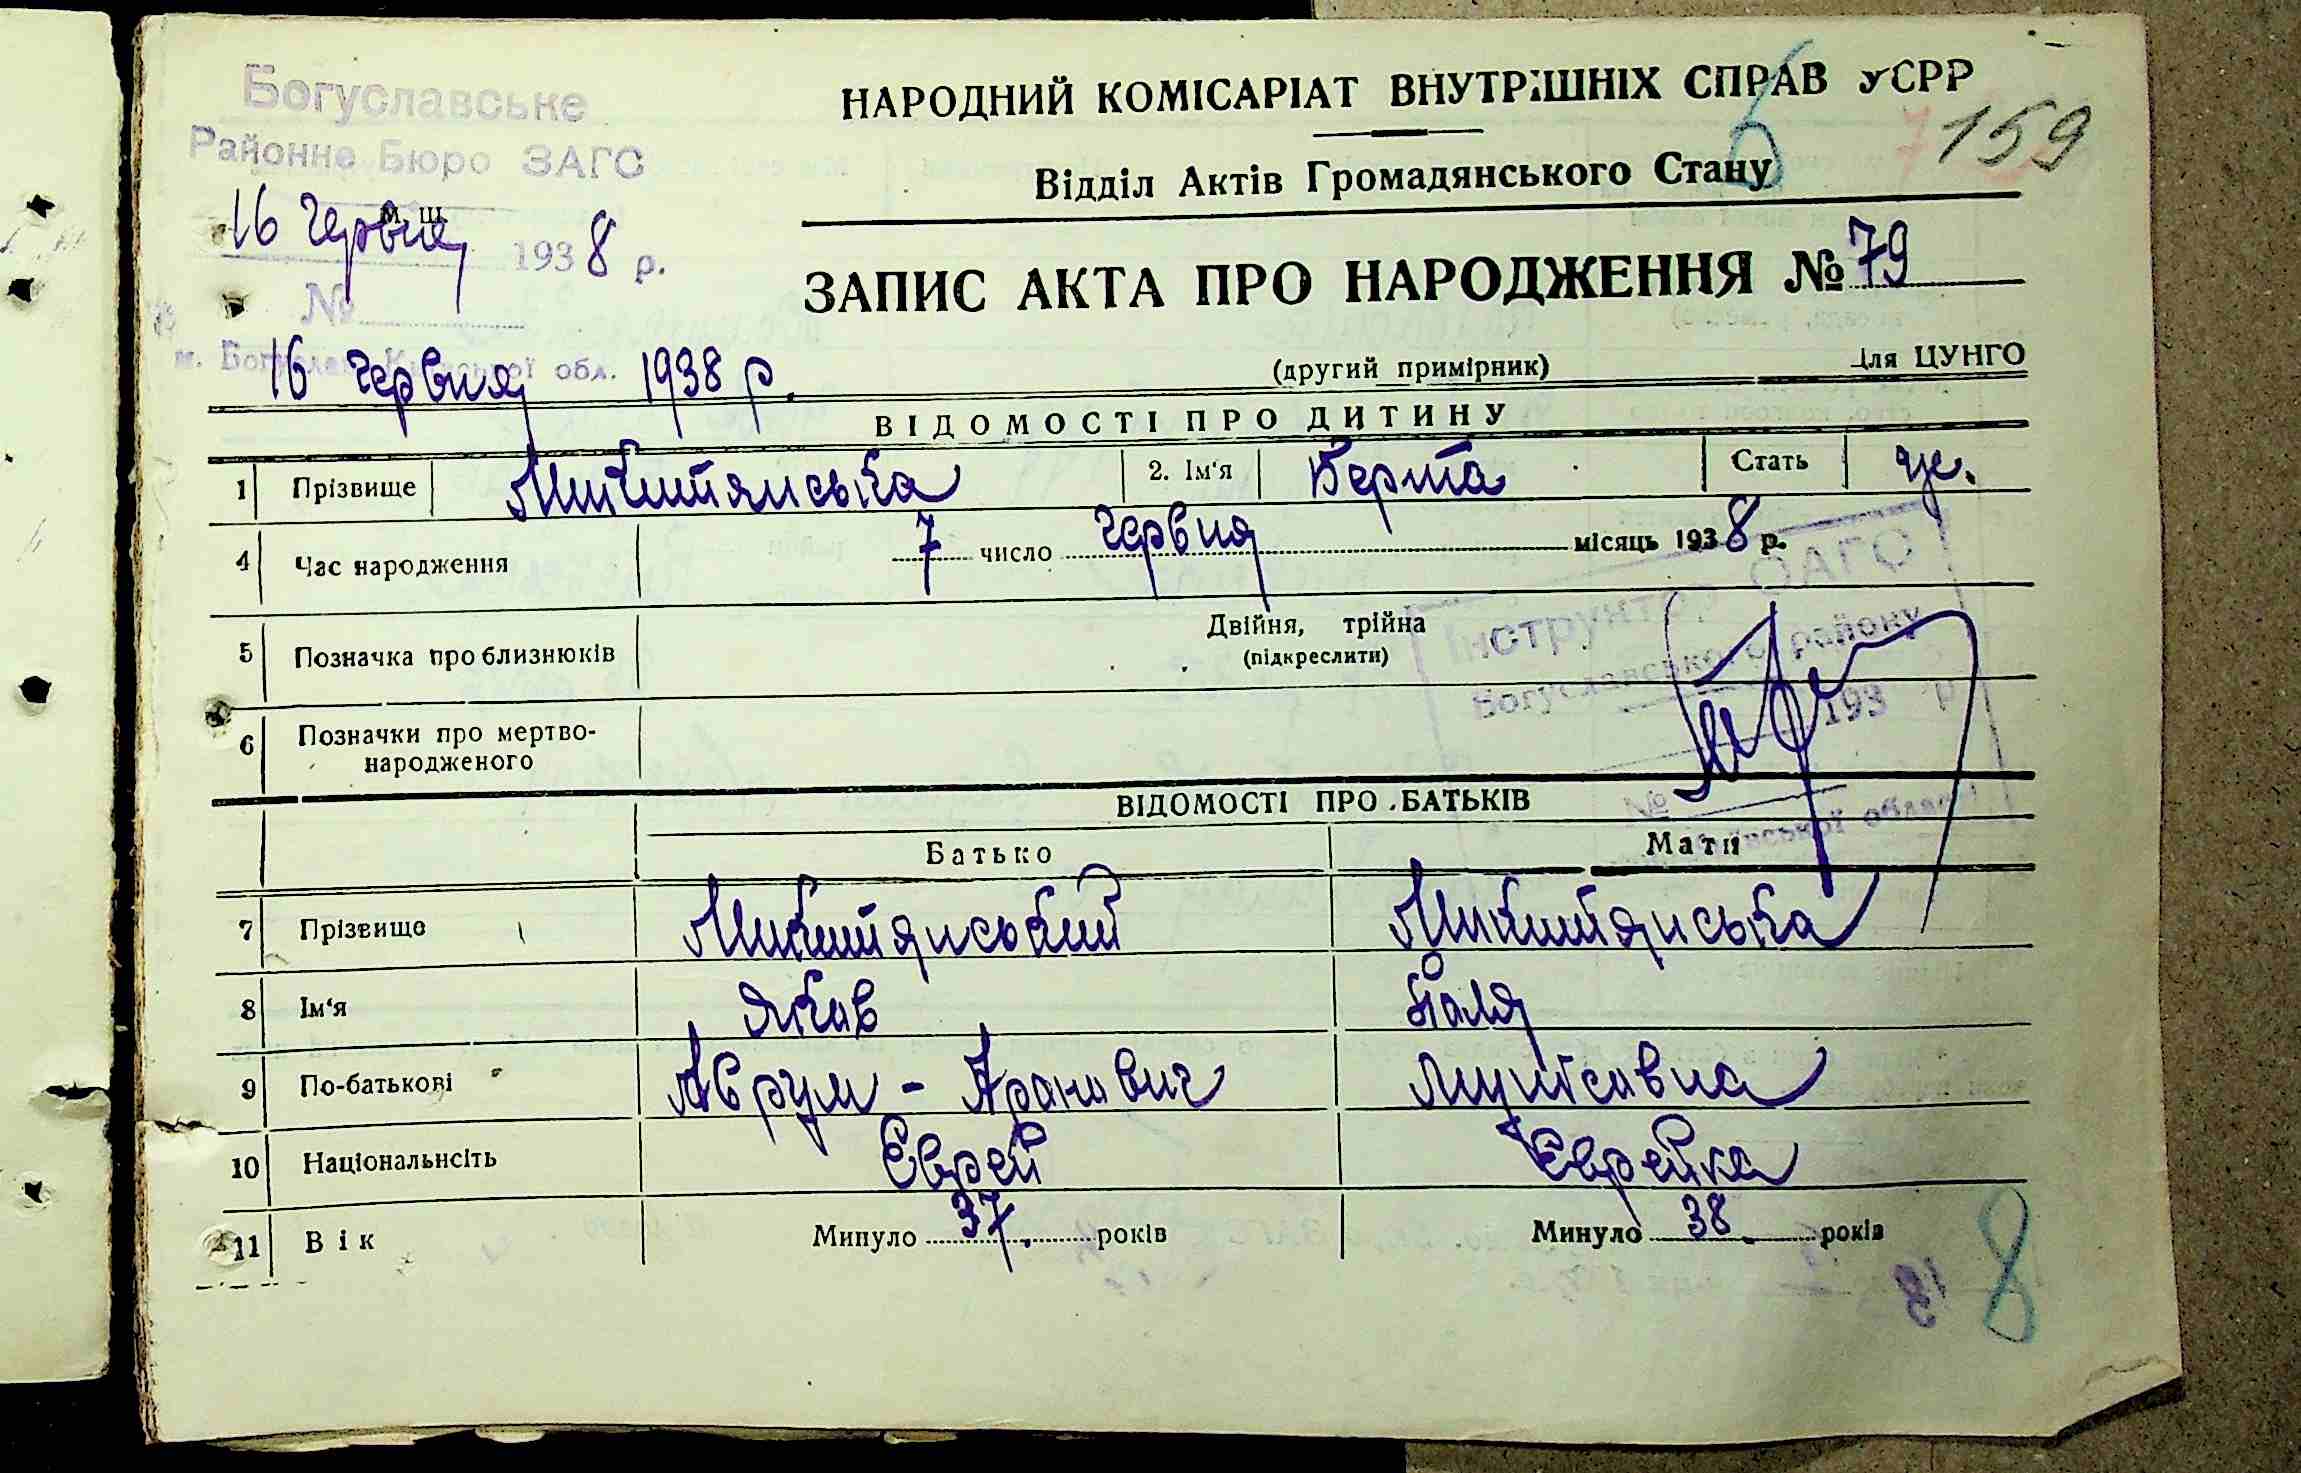 Богуславське
Районне Бюро ЗАГС
м. ш.
16 червня 1938 р.
№
м. Богуслав Київської обл.
16 червня 1938 р.
НАРОДНИЙ КОМІСАРІАТ ВНУТРІШНІХ СПРАВ УСРР
6 159
Відділ Актів Громадянського Стану
ЗАПИС АКТА ПРО НАРОДЖЕННЯ № 79
(другий примірник) Для ЦУНГО
ВІДОМОСТІ ПРО ДИТИНУ
1 Прізвище Микитянська 2. Ім'я Берта Стать ж.
4 Час народження 7 число червня місяць 1938 р.
5 Позначка про близнюків Двійня, трійна
(підкреслити)
Інструктор ОАГС
Богуславського району
193 р.
№
Київської області
6 Позначки про мертво-
народженого
ВІДОМОСТІ ПРО БАТЬКІВ
Батько Мати
7 Прізвище Микитянський Микитянська
8 Ім'я Яков
9 По-батькові Аврум - Аронович
10 Національнсіть Єврей Єврейка
11 Вік Минуло 37 років Минуло 38 років
18 8